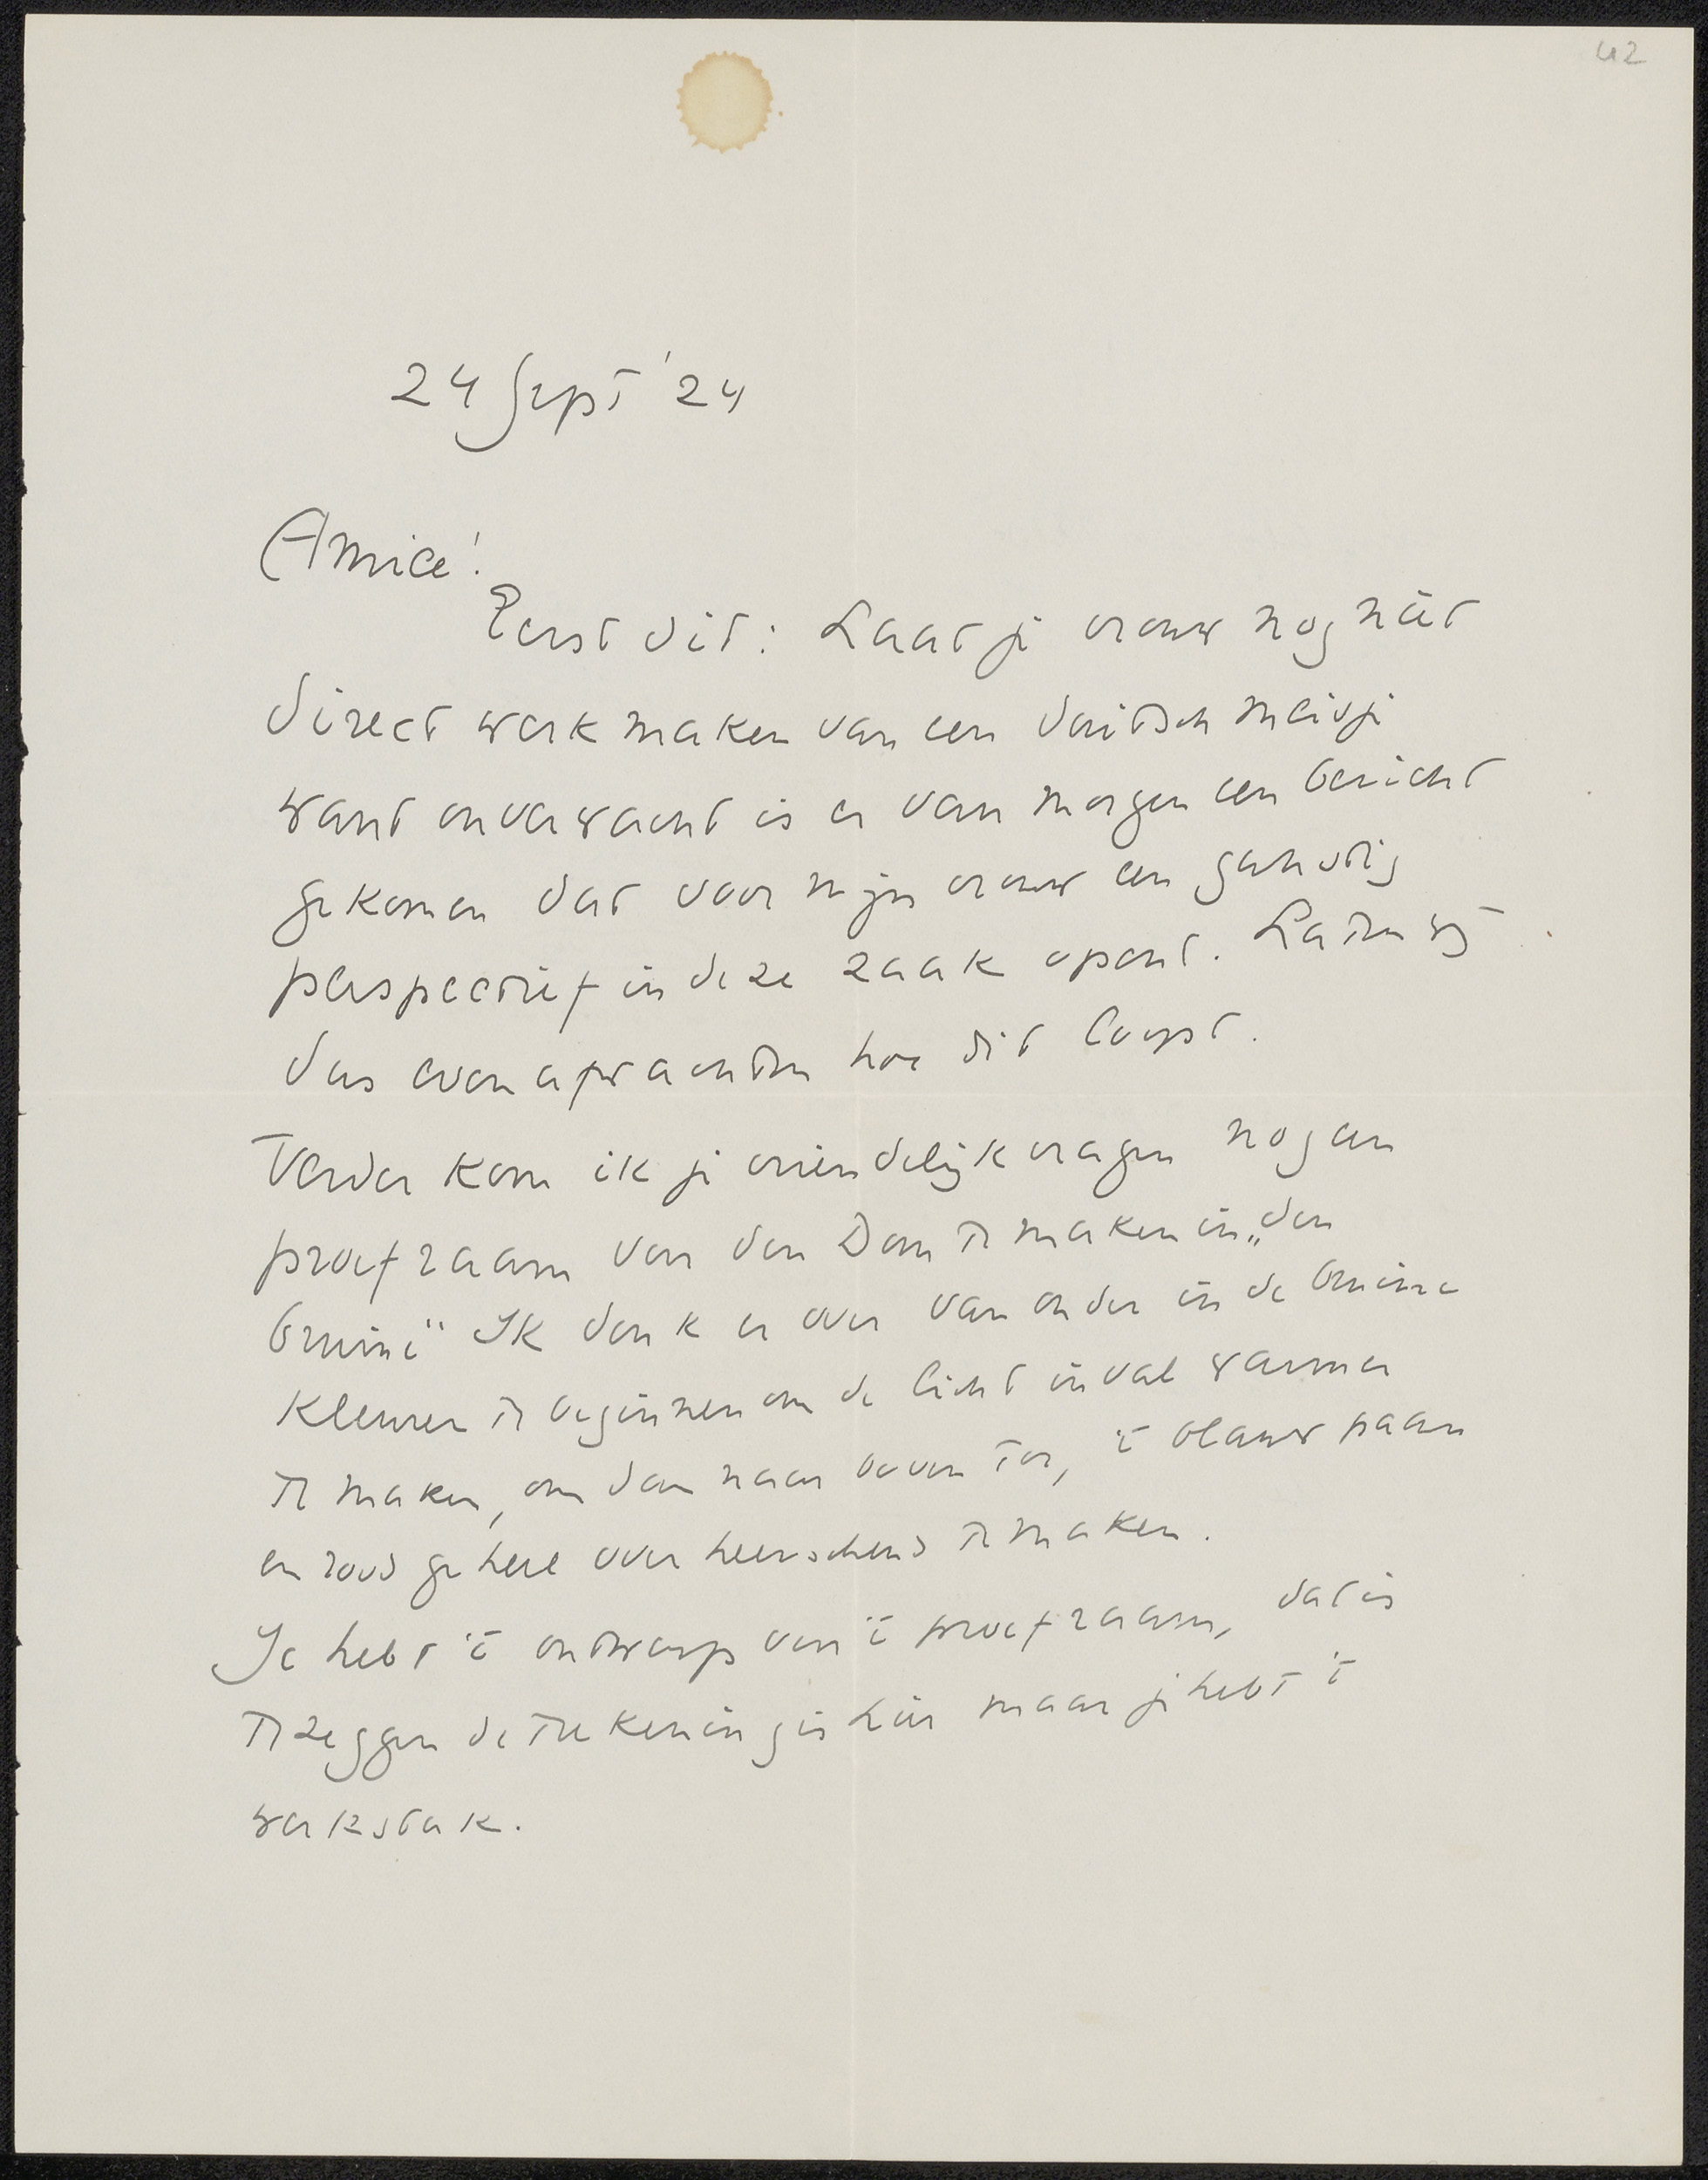 42
24 Sept '24
Amice!
Eerst dit: Laat je vrouw nog niet
direct werk maken van een duitsch meisje
want onverwacht is er van morgen een bericht
gekomen dat voor mijn vrouw een gunstig
perspectief in deze zaak opent. Laten wij
dus even afwachten hoe dit loopt.
Verder kom ik je vriendelijk vragen nog een
proefraam van den Dom te maken in „den
bruine" Ik denk er over van onder in de bruine
kleuren te beginnen om de lichtinval warmer
te maken, om dan naar boven toe, 't blauw paars
en rood geheel overheerschend te maken.
Je hebt 't ontwerp van 't proefraam, dat is
te zeggen de teekening is hier maar je hebt 't
werkstuk.